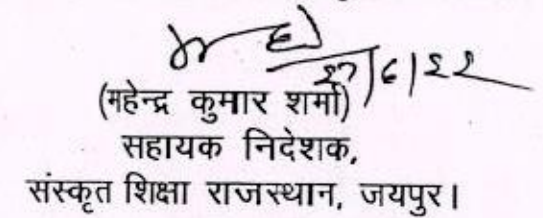 27/6/22
(महेन्द्र कुमार शर्मा)
सहायक निदेशक,
संस्कृत शिक्षा राजस्थान, जयपुर।